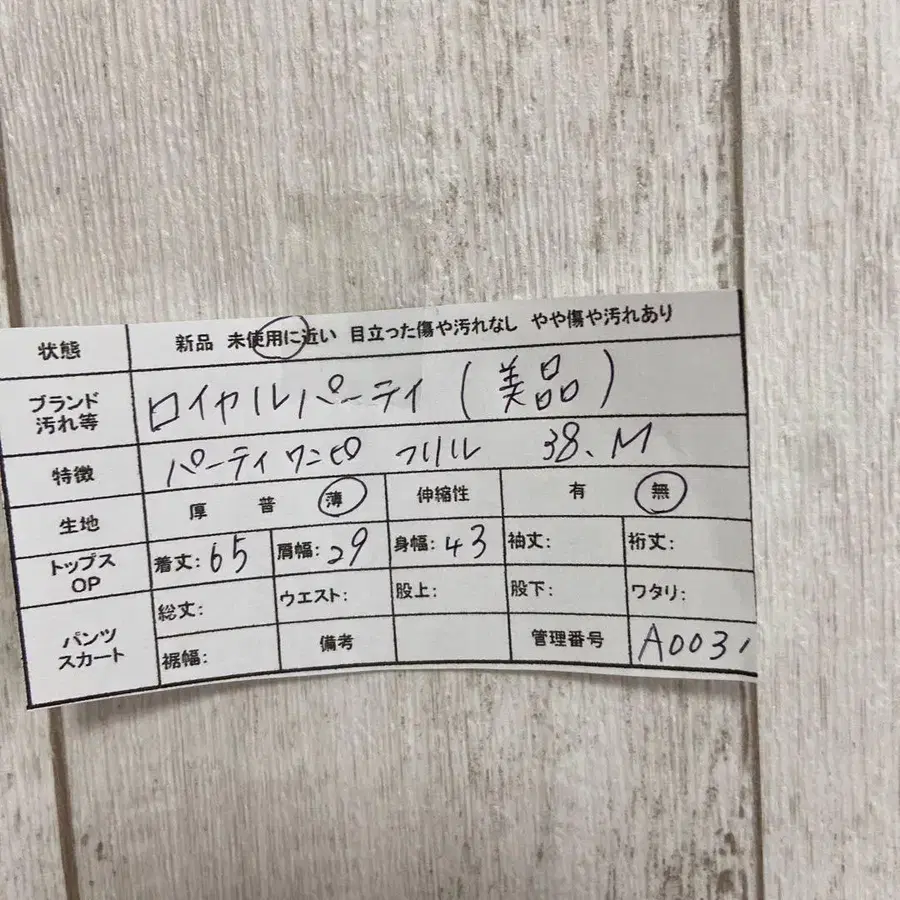 状態 新品 未使用に近い 目立った傷や汚れなし やや傷や汚れあり
ブランド
汚れ等 ロイヤルパーティ(美品)
特徴 パーティワンピ フリル 38、M
生地 厚 普 薄 伸縮性 有 無
トップス
OP 着丈:65 肩幅:29 身幅:43 袖丈: 裄丈:
総丈: ウエスト: 股上: 股下: ワタリ:
パンツ
スカート 裾幅: 備考 管理番号 A003